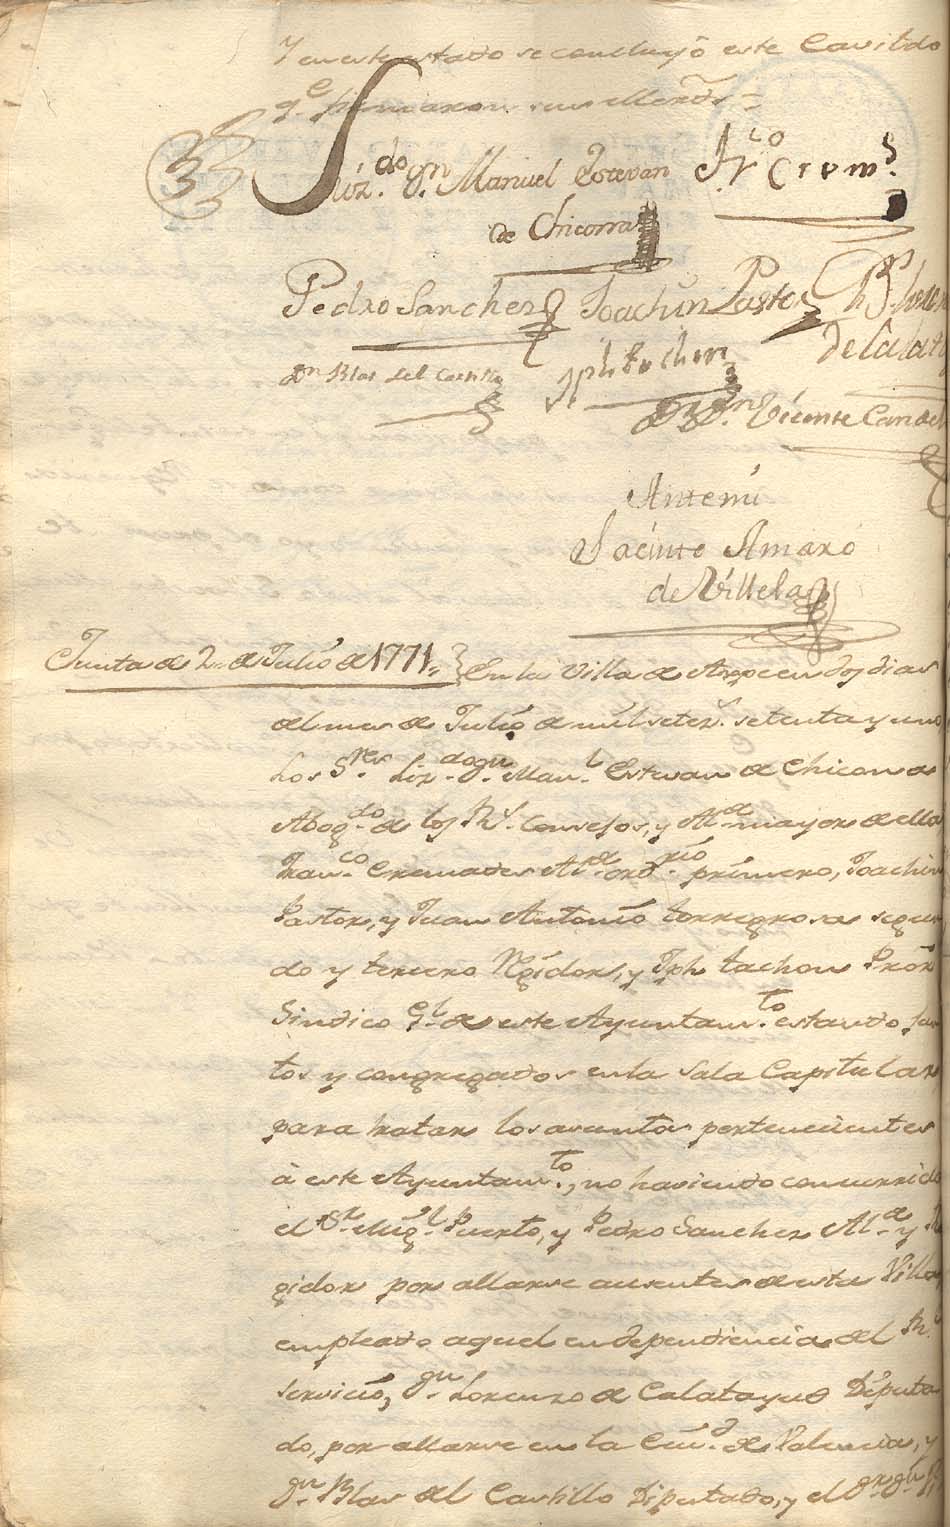 Y en este estado se concluyó este Cavildo
q.e firmaron sus Merzds =
Liz.do Dn. Manuel Estevan
de Chicorra
Fr.co Crem.s
Pedro Sanchez
Joachin Pastor
de Calata
Dn Blas del Castillo
Jph Tachon
Dr. Dn. Vicente Candel
Antemi
Jacinto Amaro
de Villela
Junta de 2 de Julio de 1771,,
En la Villa de Aspe en dos dias
del mes de Julio de mil setez.s setenta y uno
Los S.res Liz.do Dn. Man.l Estevan de Chicorra
Abog.do de los Rs. Consejos, y Al.de mayor de ella
Fran.co Cremades Al.de ord.rio primero, Joachin
Pastor, y Juan Antonio Torregrosa segun
do y tercero Rexidor, y Jph Tachon Pror
Sindico Gl. de este Ayuntam.to estando jun
tos y congregados en la Sala Capitular
para tratar los asuntos pertenecientes
à este Ayuntam.to, no haviendo concurrido
el Sr. Mig.l Puerto, y Pedro Sanchez Al.de y Re
gidor por allarse ausentes de esta Villa
empleado aquel en dependiencia del Rl.
servicio, Dn. Lorenzo de Calatayud Diputa
do, por allarse en la Ciu.d de Valencia, y
Dn. Blas del Castillo Diputado, y el Dr. Dn.